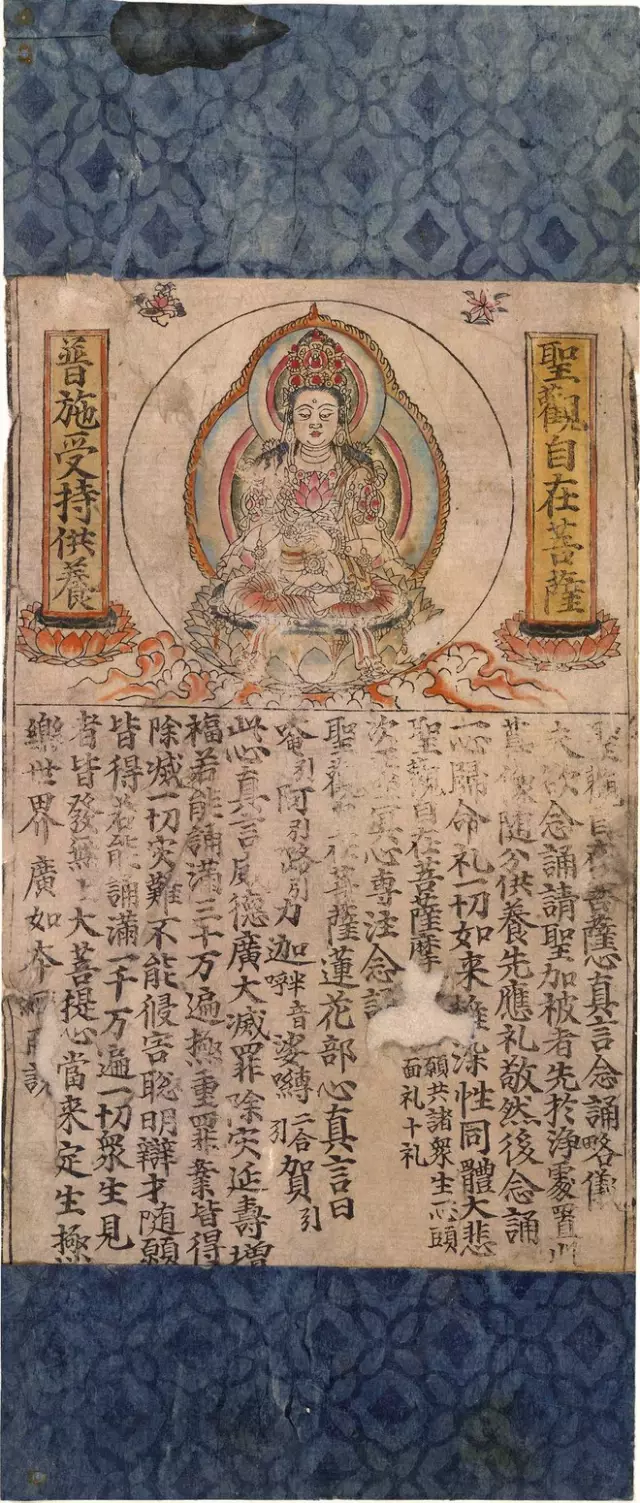 聖觀自在菩薩
普施受持供養
聖觀自在菩薩心真言念誦略儀
夫欲念誦請聖加被者先於淨處置此
尊像隨分供養先應礼敬然後念誦
一心歸命礼一切如来離染性同體大悲
聖觀自在菩薩摩 願共諸衆生 面礼十礼
次 冥心專注念誦
聖觀自在菩薩蓮花部心真言曰
唵引阿引路引力迦半音呼娑嚩二合引賀引
此心真言威德廣大滅罪除灾延壽增
福若能誦滿三十万遍極重罪業皆得
除滅一切灾難不能侵害聰明辯才随願
皆得若能誦滿一千万遍一切衆生見
者皆發無上大菩提心當来定生極
樂世界廣如本